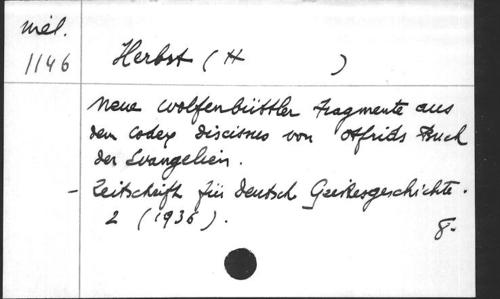 mél.
1146
Herbst (H )
Neue wolfenbüttler Fragmente aus
dem Codex discissus von Otfrids Buch
der Evangelien.
- Zeitschrift für deutsch Geistesgeschichte.
2 (1936).
8-